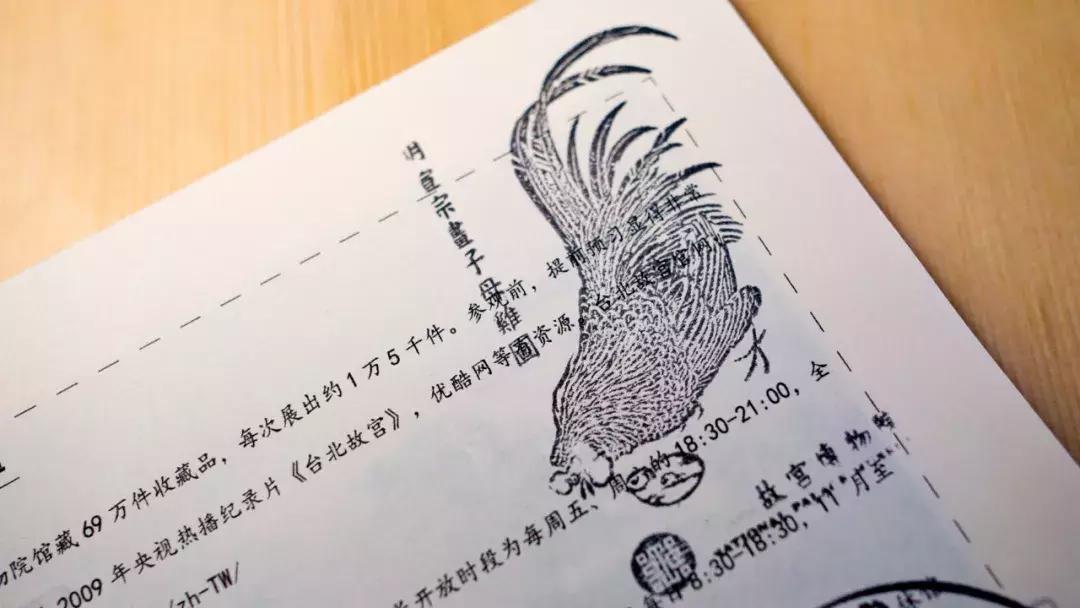 明宣宗畫子母雞圖
物院馆藏 69 万件收藏品，每次展出约 1 万 5 千件。参观前，提前预习显得非常
2009 年央视热播纪录片《台北故宫》，优酷网等 资源。台北故宫官网
/zh-TW/
开放时段为每周五、周六的 18:30-21:00，全
8:30-18:30，11 月至
故宮博物